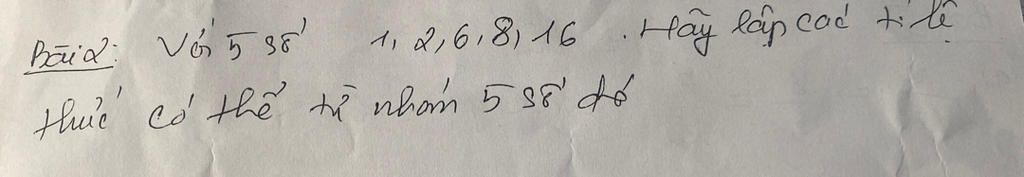 Bài 2: Với 5 số 1, 2, 6, 8, 16 . Hãy lập các tỉ lệ
thức có thể từ nhóm 5 số đó